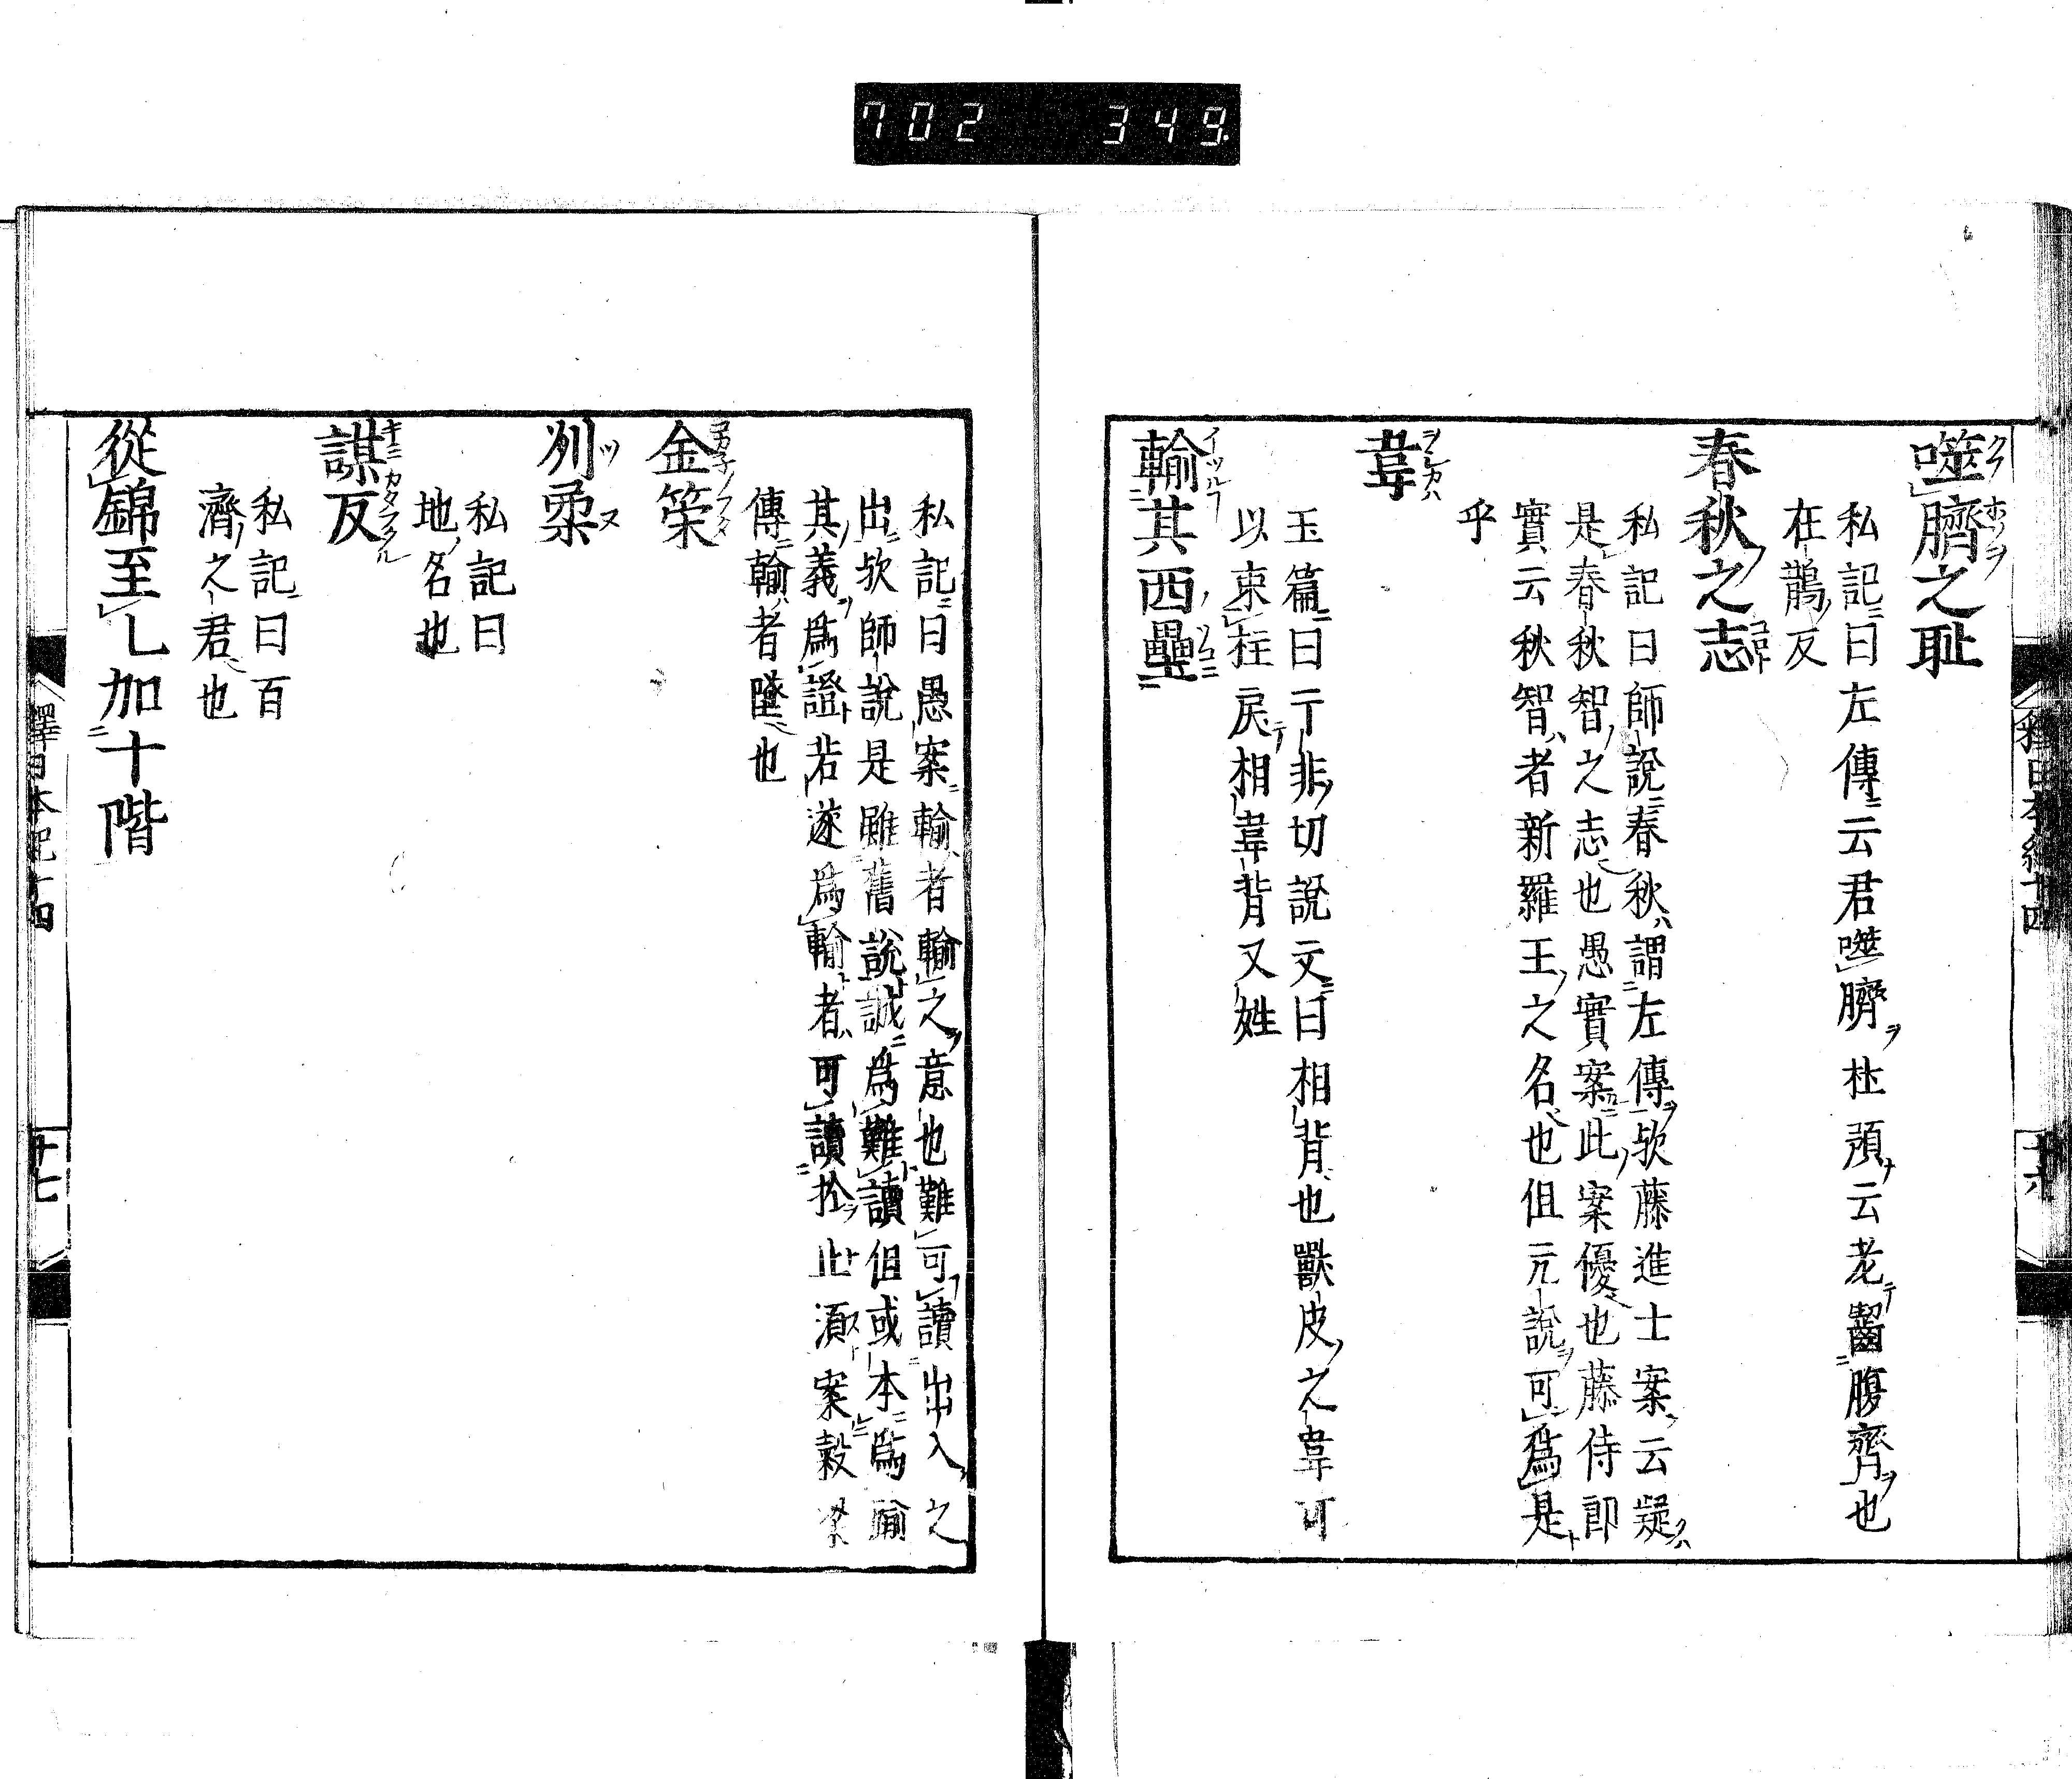 702 349
噬臍之耻
私記曰左傳云君噬臍杜預云老齧腹齊也
在鵲反
春秋之志
私記曰師說春秋謂左傳欤藤進士案云疑
是春秋智之志也愚實案此案優也藤侍郎
實云秋智者新羅王之名也但元說可爲是
乎
韋
玉篇曰于非切說文曰相背也獸皮之韋可
以束枉戾相韋背又姓
輸其西壘
私記曰愚案輸者輸之意也難可讀出入之
出欤師說是雖舊說誠爲難讀但或本爲
其義爲證若遂爲輸者可讀捨止須案穀梁
傳輸者墜也
金策
列柔
私記曰
地名也
謀反
私記曰百
濟之君也
從錦至乚加十階
釋日本紀十四
十七